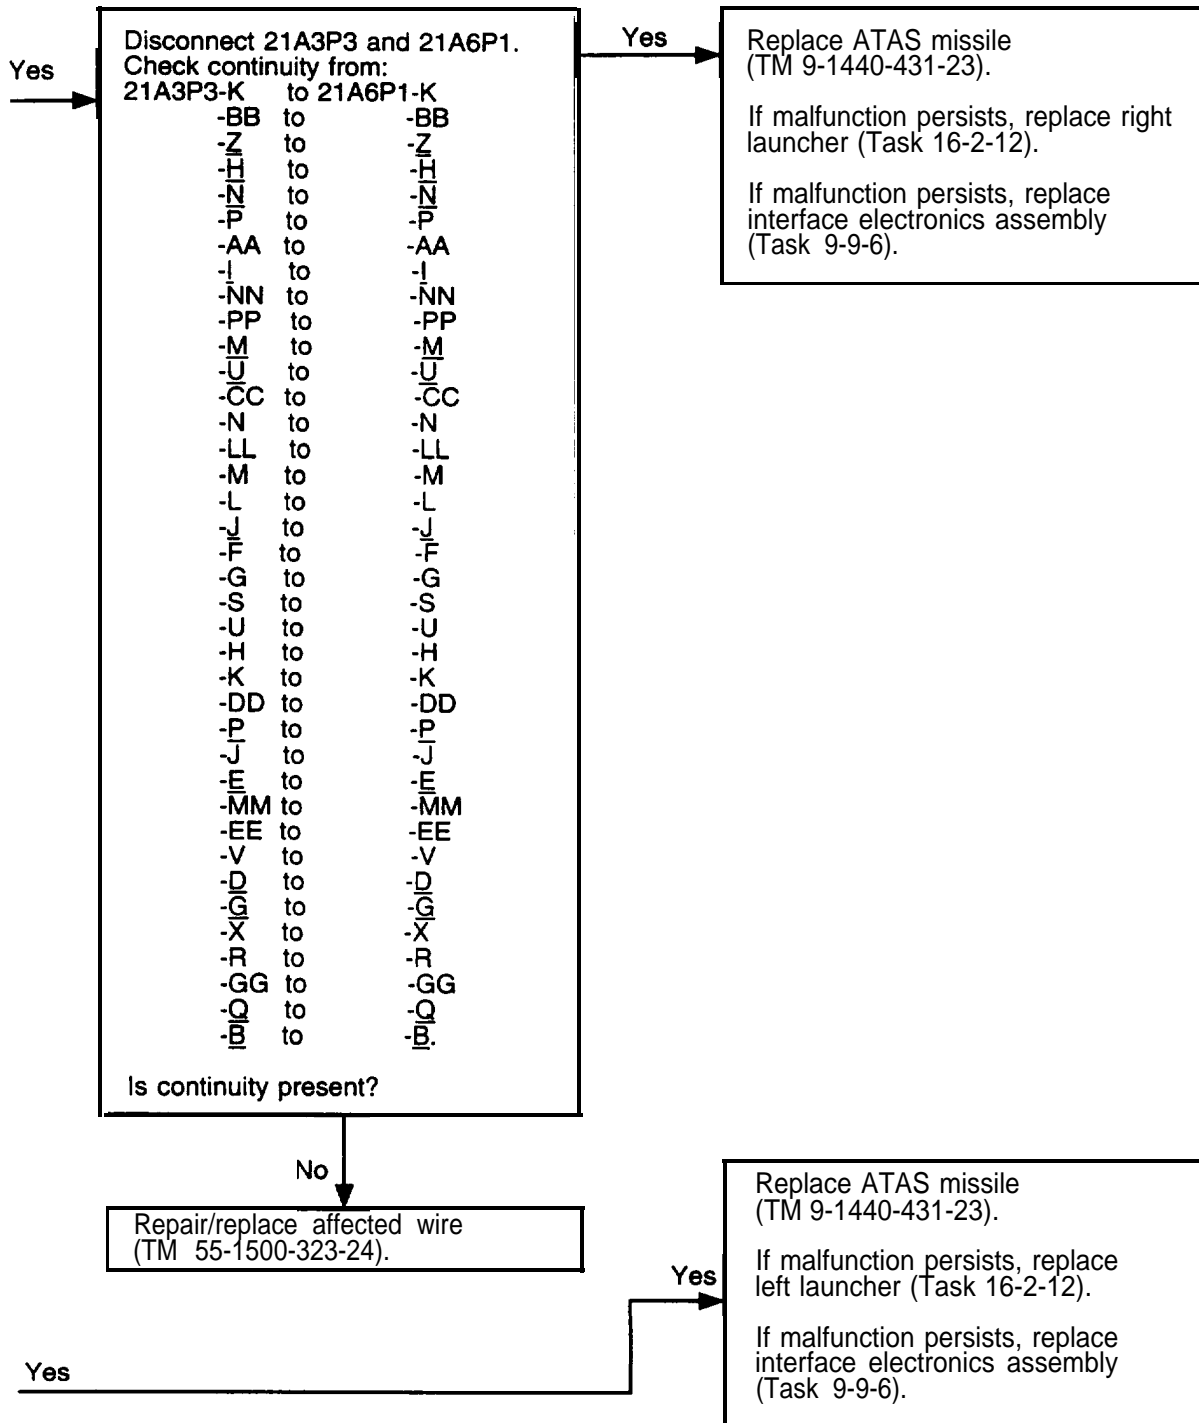 Yes
Disconnect 21A3P3 and 21A6P1.
Check continuity from:
21A3P3-K to 21A6P1-K
-BB to -BB
-Z to -Z
-H to -H
-N to -N
-P to -P
-AA to -AA
-I to -I
-NN to -NN
-PP to -PP
-M to -M
-U to -U
-CC to -CC
-N to -N
-LL to -LL
-M to -M
-L to -L
-J to -J
-F to -F
-G to -G
-S to -S
-U to -U
-H to -H
-K to -K
-DD to -DD
-P to -P
-J to -J
-E to -E
-MM to -MM
-EE to -EE
-V to -V
-D to -D
-G to -G
-X to -X
-R to -R
-GG to -GG
-Q to -Q
-B to -B.
Is continuity present?
Yes
Replace ATAS missile
(TM 9-1440-431-23).
If malfunction persists, replace right
launcher (Task 16-2-12).
If malfunction persists, replace
interface electronics assembly
(Task 9-9-6).
No
Repair/replace affected wire
(TM 55-1500-323-24).
Yes
Yes
Replace ATAS missile
(TM 9-1440-431-23).
If malfunction persists, replace
left launcher (Task 16-2-12).
If malfunction persists, replace
interface electronics assembly
(Task 9-9-6).